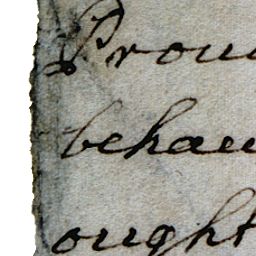 Prou
behau
ought